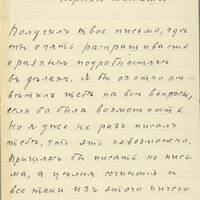 Получилъ твое письмо, гдѣ
ты опять распрашиваешь
о разныхъ подробностяхъ
въ дѣлахъ. Я бы охотно от-
вѣтилъ тебѣ на всѣ вопросы,
если бы была возможность
Но я уже не разъ писалъ
тебѣ, что это невозможно.
Пришлось бы писать не пись-
ма, а цѣлыя сочиненія и
все таки изъ этого ничего